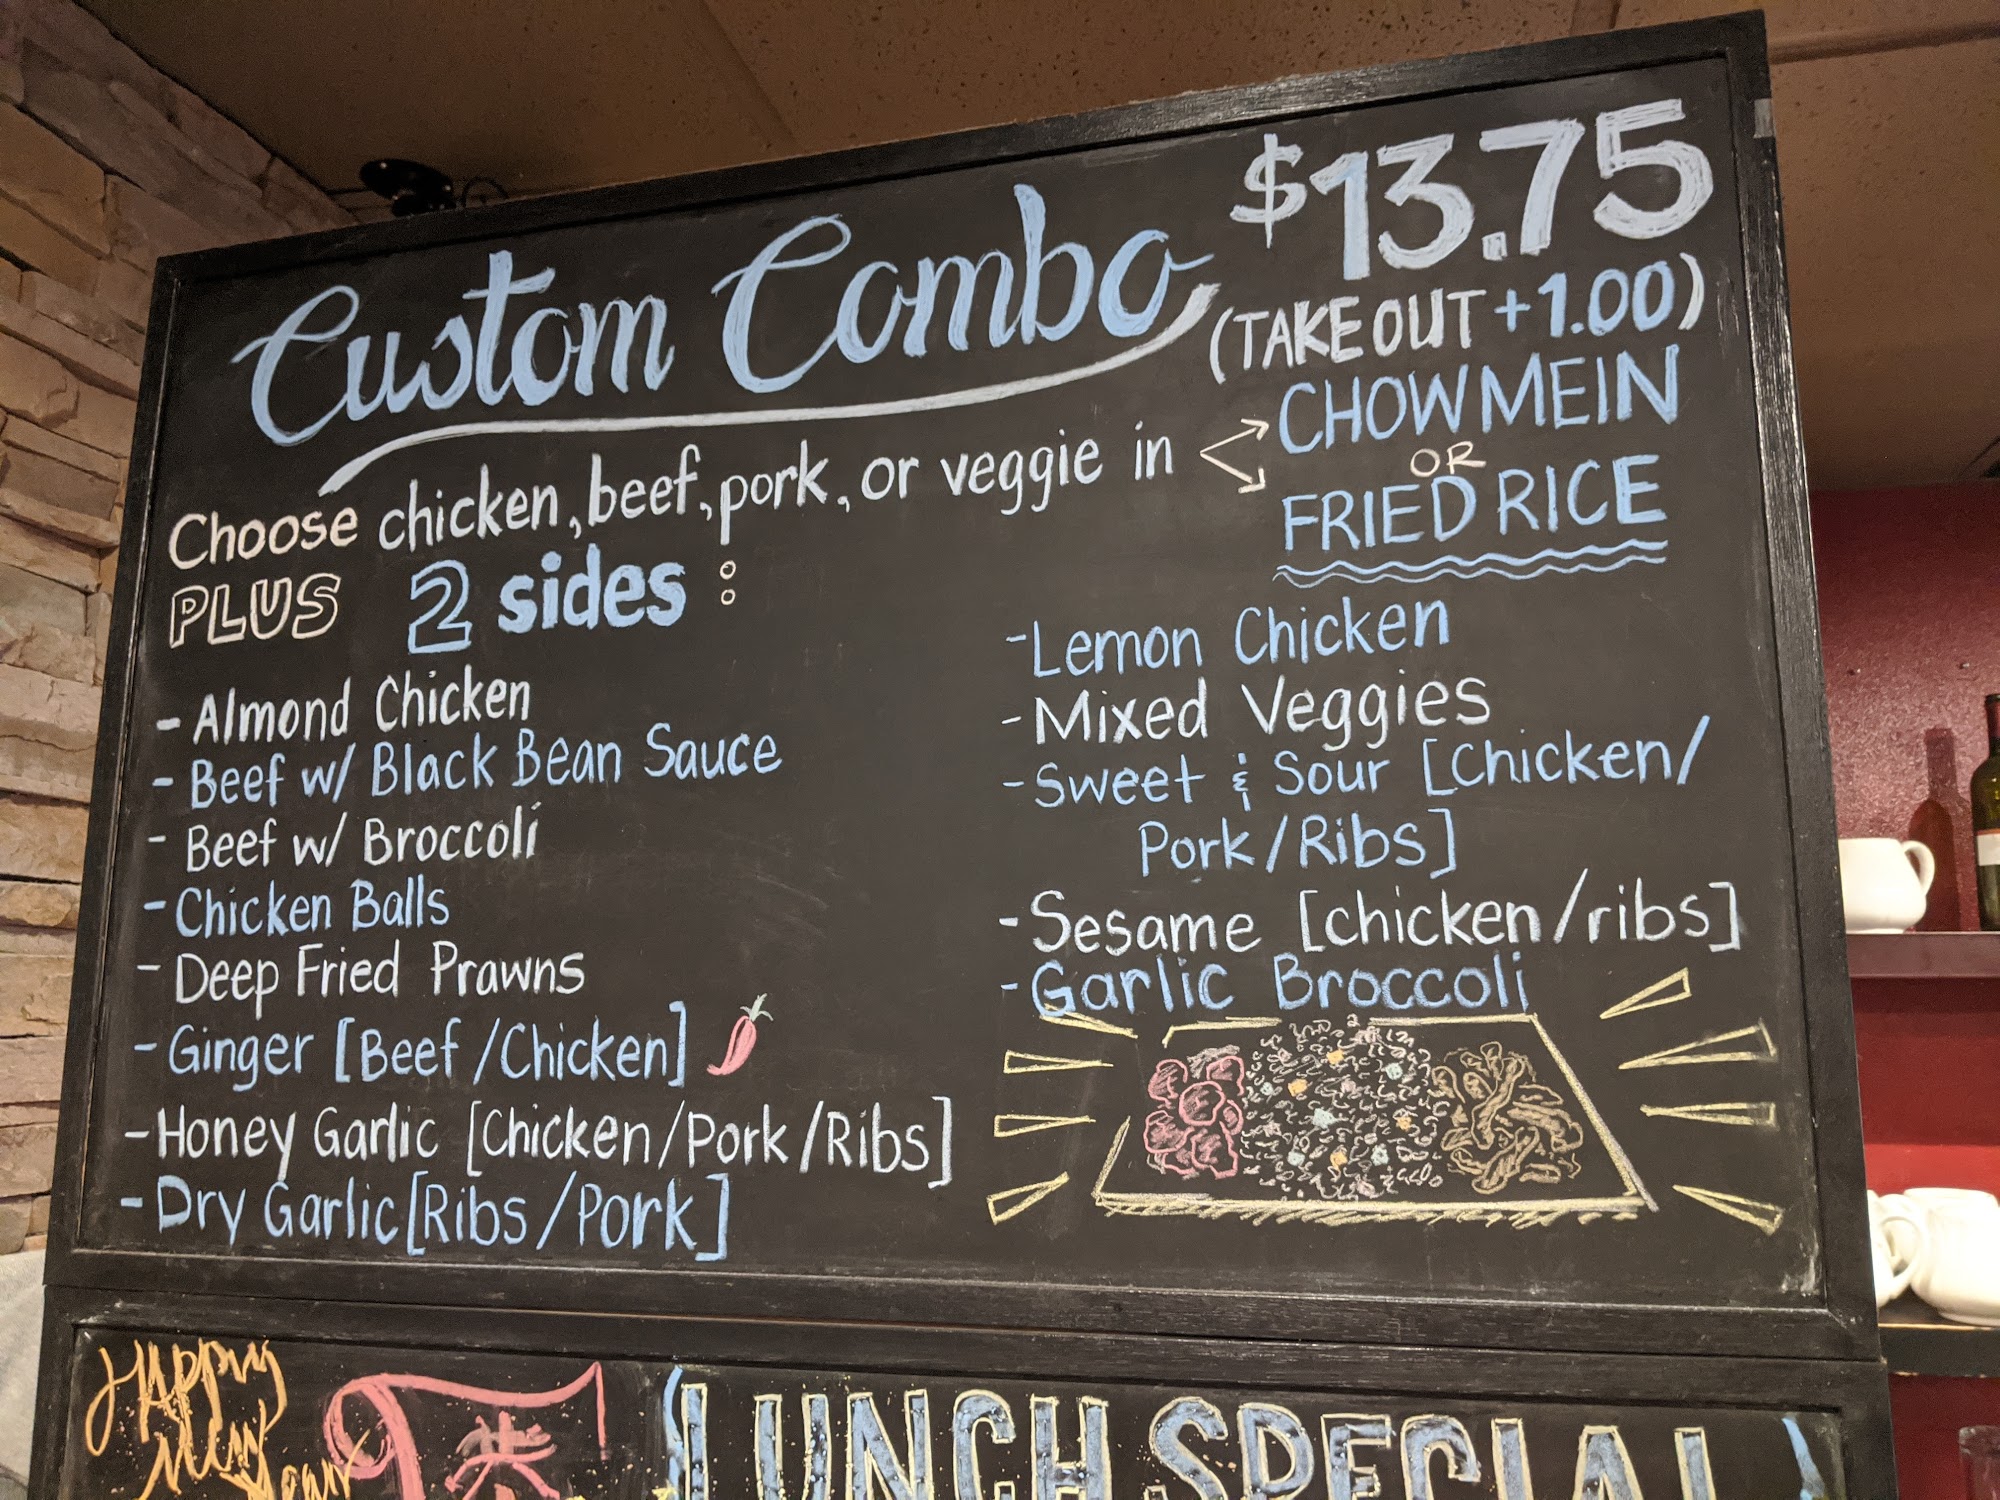 Custom Combo $13.75
(TAKE OUT +1.00)
Choose chicken, beef, pork, or veggie in
CHOW MEIN
OR
FRIED RICE
PLUS 2 sides :
- Almond Chicken
- Beef w/ Black Bean Sauce
- Beef w/ Broccoli
- Chicken Balls
- Deep Fried Prawns
- Ginger [Beef/Chicken]
- Honey Garlic [Chicken/Pork/Ribs]
- Dry Garlic [Ribs/Pork]
- Lemon Chicken
- Mixed Veggies
- Sweet & Sour [Chicken/
Pork/Ribs]
- Sesame [chicken/ribs]
- Garlic Broccoli
HAPPY
New
Year
LUNCH SPECIAL